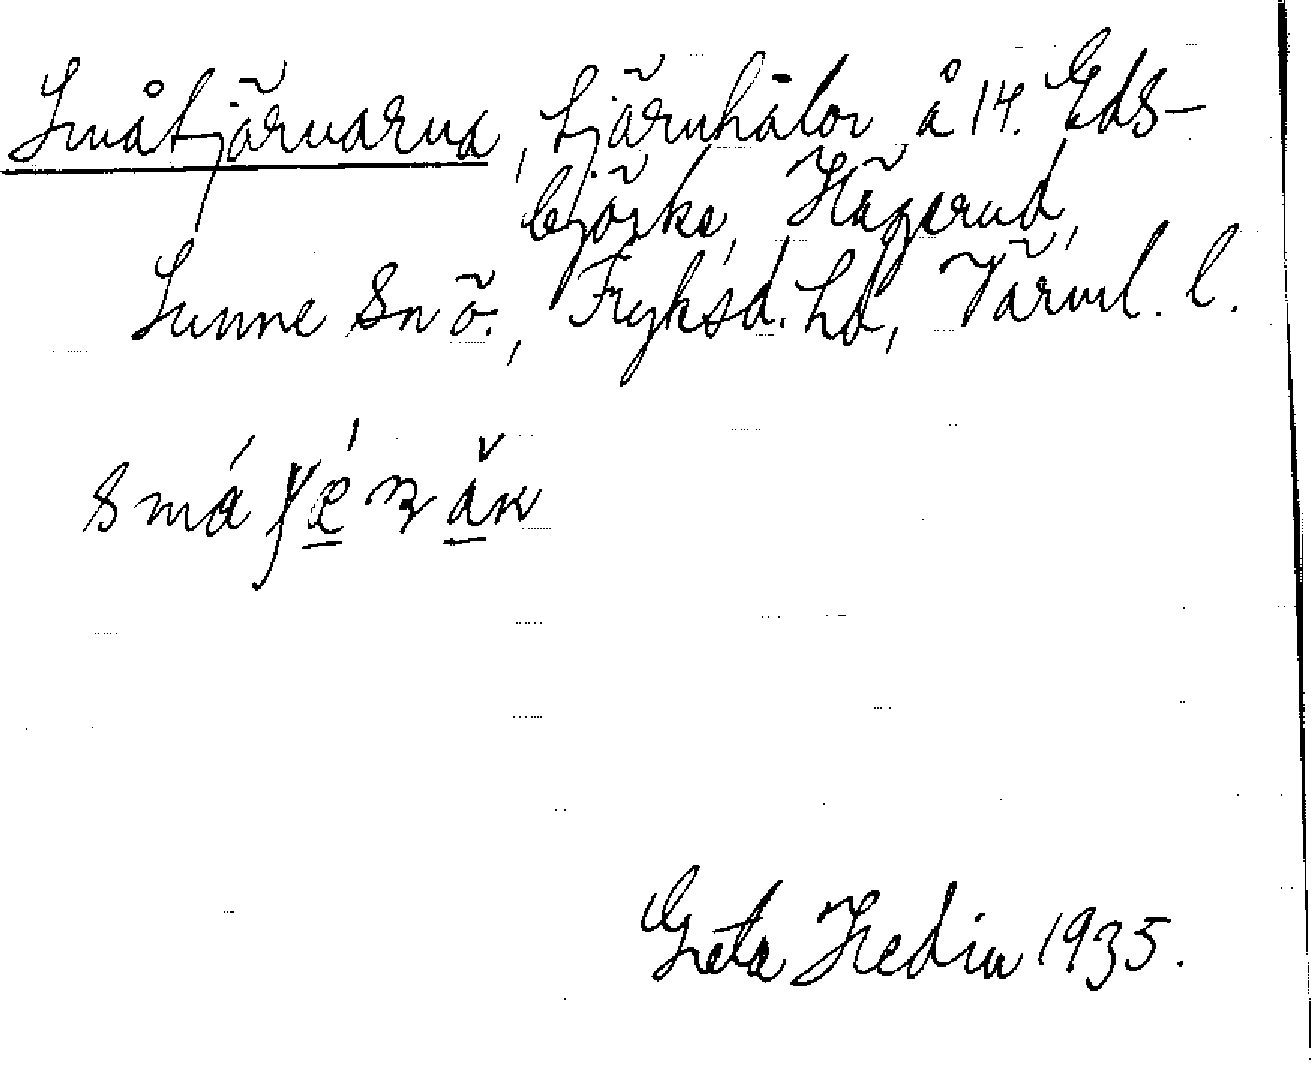 Småtjärnarna, tjärnhålor å 14. Eds-
björke, Hågerud,
Sunne Snö., Fryksd. hd, Värml. l.
Greta Hedin 1935.